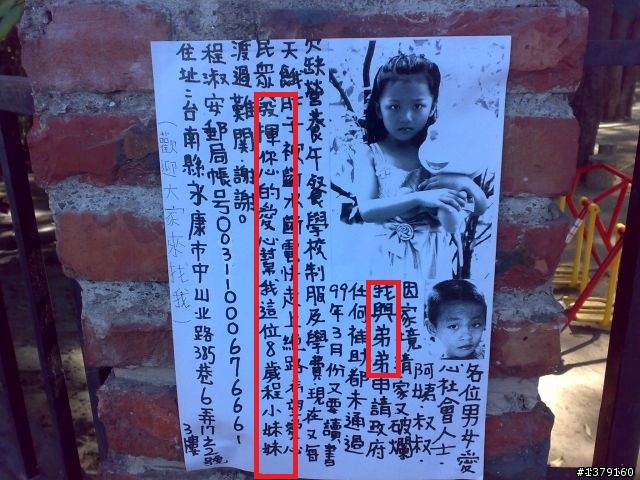 各位男女愛
心社會人士·
阿姨·叔叔·
因家境清家又破爛
我與弟弟申請政府
任何補助都未通過
99年3月份又要讀書
欠缺營養午餐學校制服及學費現在又每
天餓肚子被斷水斷電快走上絕路希望愛心
民眾發揮你心的愛心幫我這位8歲程小妹妹
渡過難關·謝謝。
程淑安郵局帳号00311000676661
住址:台南縣永康市中山北路385巷6弄 號
3樓
(歡迎大家來找我)
#1379160